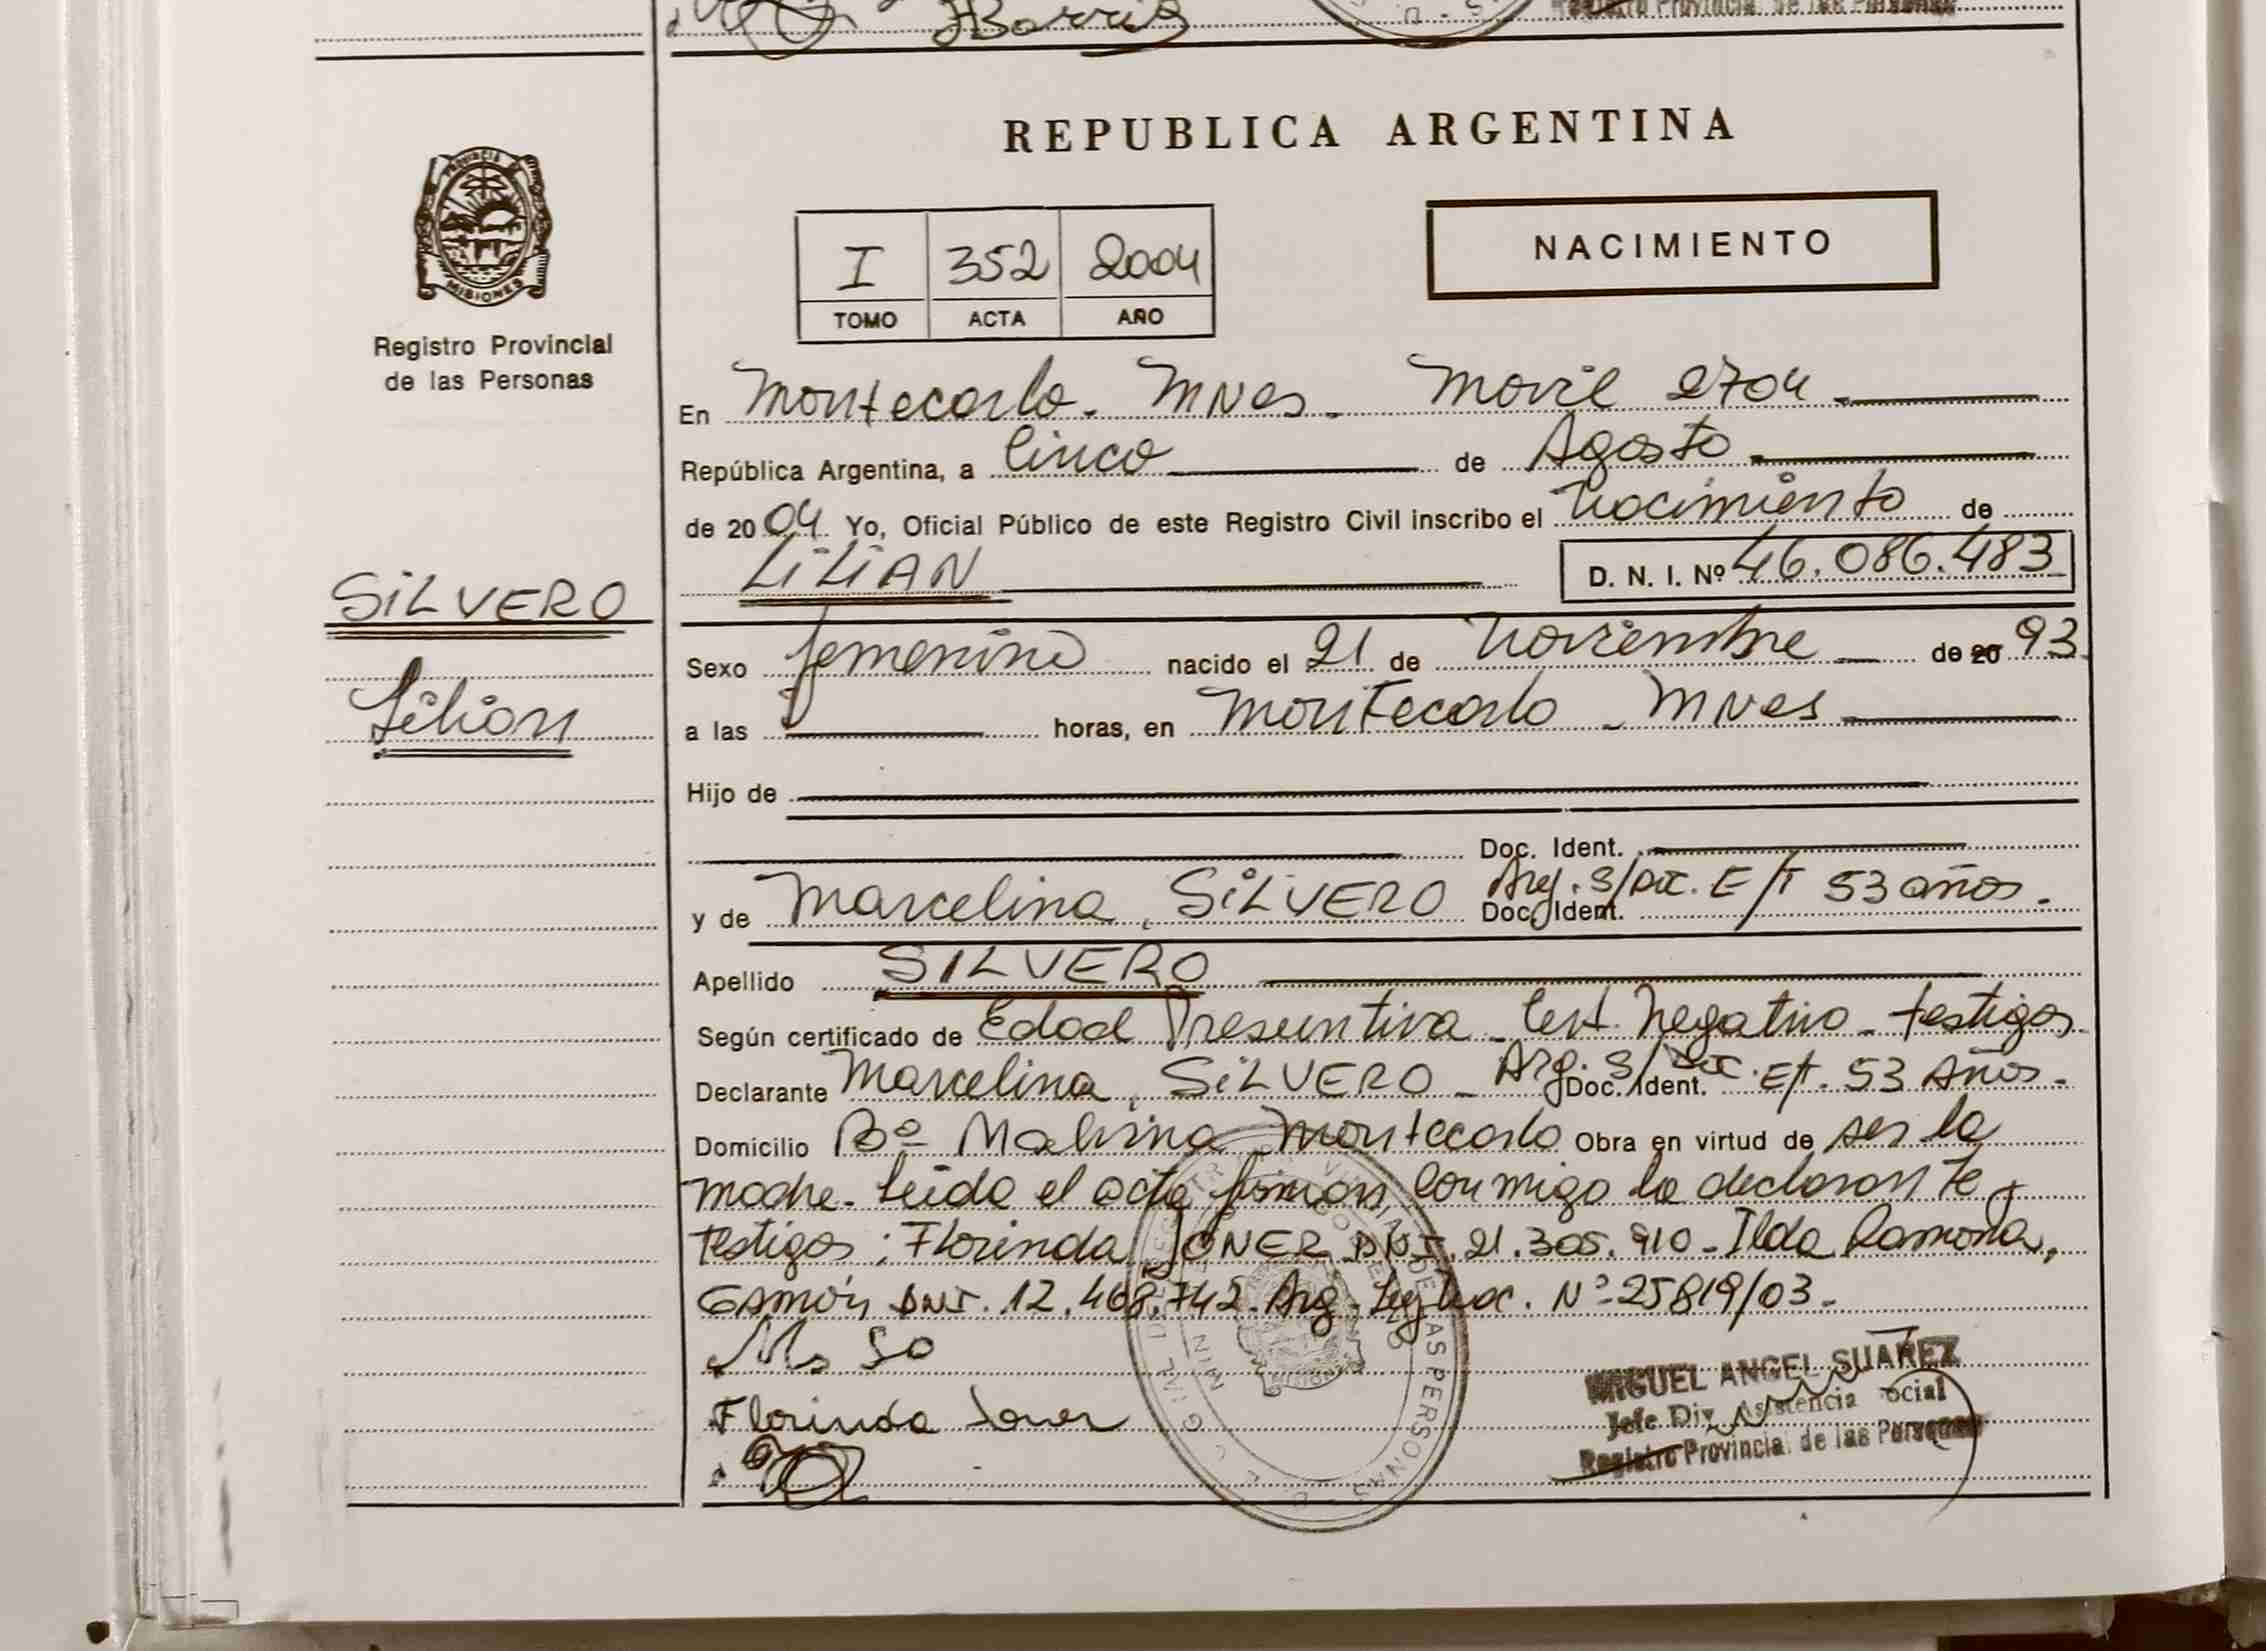 Barrio
Registro Provincial de las Personas
PROVINCIA
MISIONES
Registro Provincial
de las Personas
SiLVERO
Lilian
REPUBLICA ARGENTINA
I 352 2004
TOMO ACTA AÑO
NACIMIENTO
En Montecarlo. MNes. Movil 2704
República Argentina, a Cinco de Agosto
de 2004 Yo, Oficial Público de este Registro Civil inscribo el Nacimiento de
LiLiAN D. N. I. Nº 46.086.483
Sexo femenino nacido el 21 de Noviembre de 20 93
a las horas, en Montecarlo - MNes
Hijo de
Doc. Ident.
y de Marcelina, SiLVERO Doc. Ident. Arg. S/Doc. E/T 53 años.
Apellido SILVERO
Según certificado de Edad Presuntiva - Cert. Negativo - testigos
Declarante Marcelina, SiLVERO - Doc. Ident. Arg. S/Doc. E/T. 53 Años.
Domicilio Bº Malvina Montecarlo Obra en virtud de ser la
madre. Leida el acta firman conmigo la declarante y
testigos: Florinda JONER DNI. 21.305.910 - Ilda Ramona,
GAMÓN DNI. 12.468.742. Arg. Ley Nº 25819/03.
Florinda Joner
MIGUEL ANGEL SUAREZ
Jefe Div. Asistencia Social
Registro Provincial de las Personas